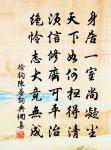 身居一室尚凝尘
天下如何扫得清
须信修齐可平治
绝怜志大竟无成
徐钧陈蕃诗意佩兰書